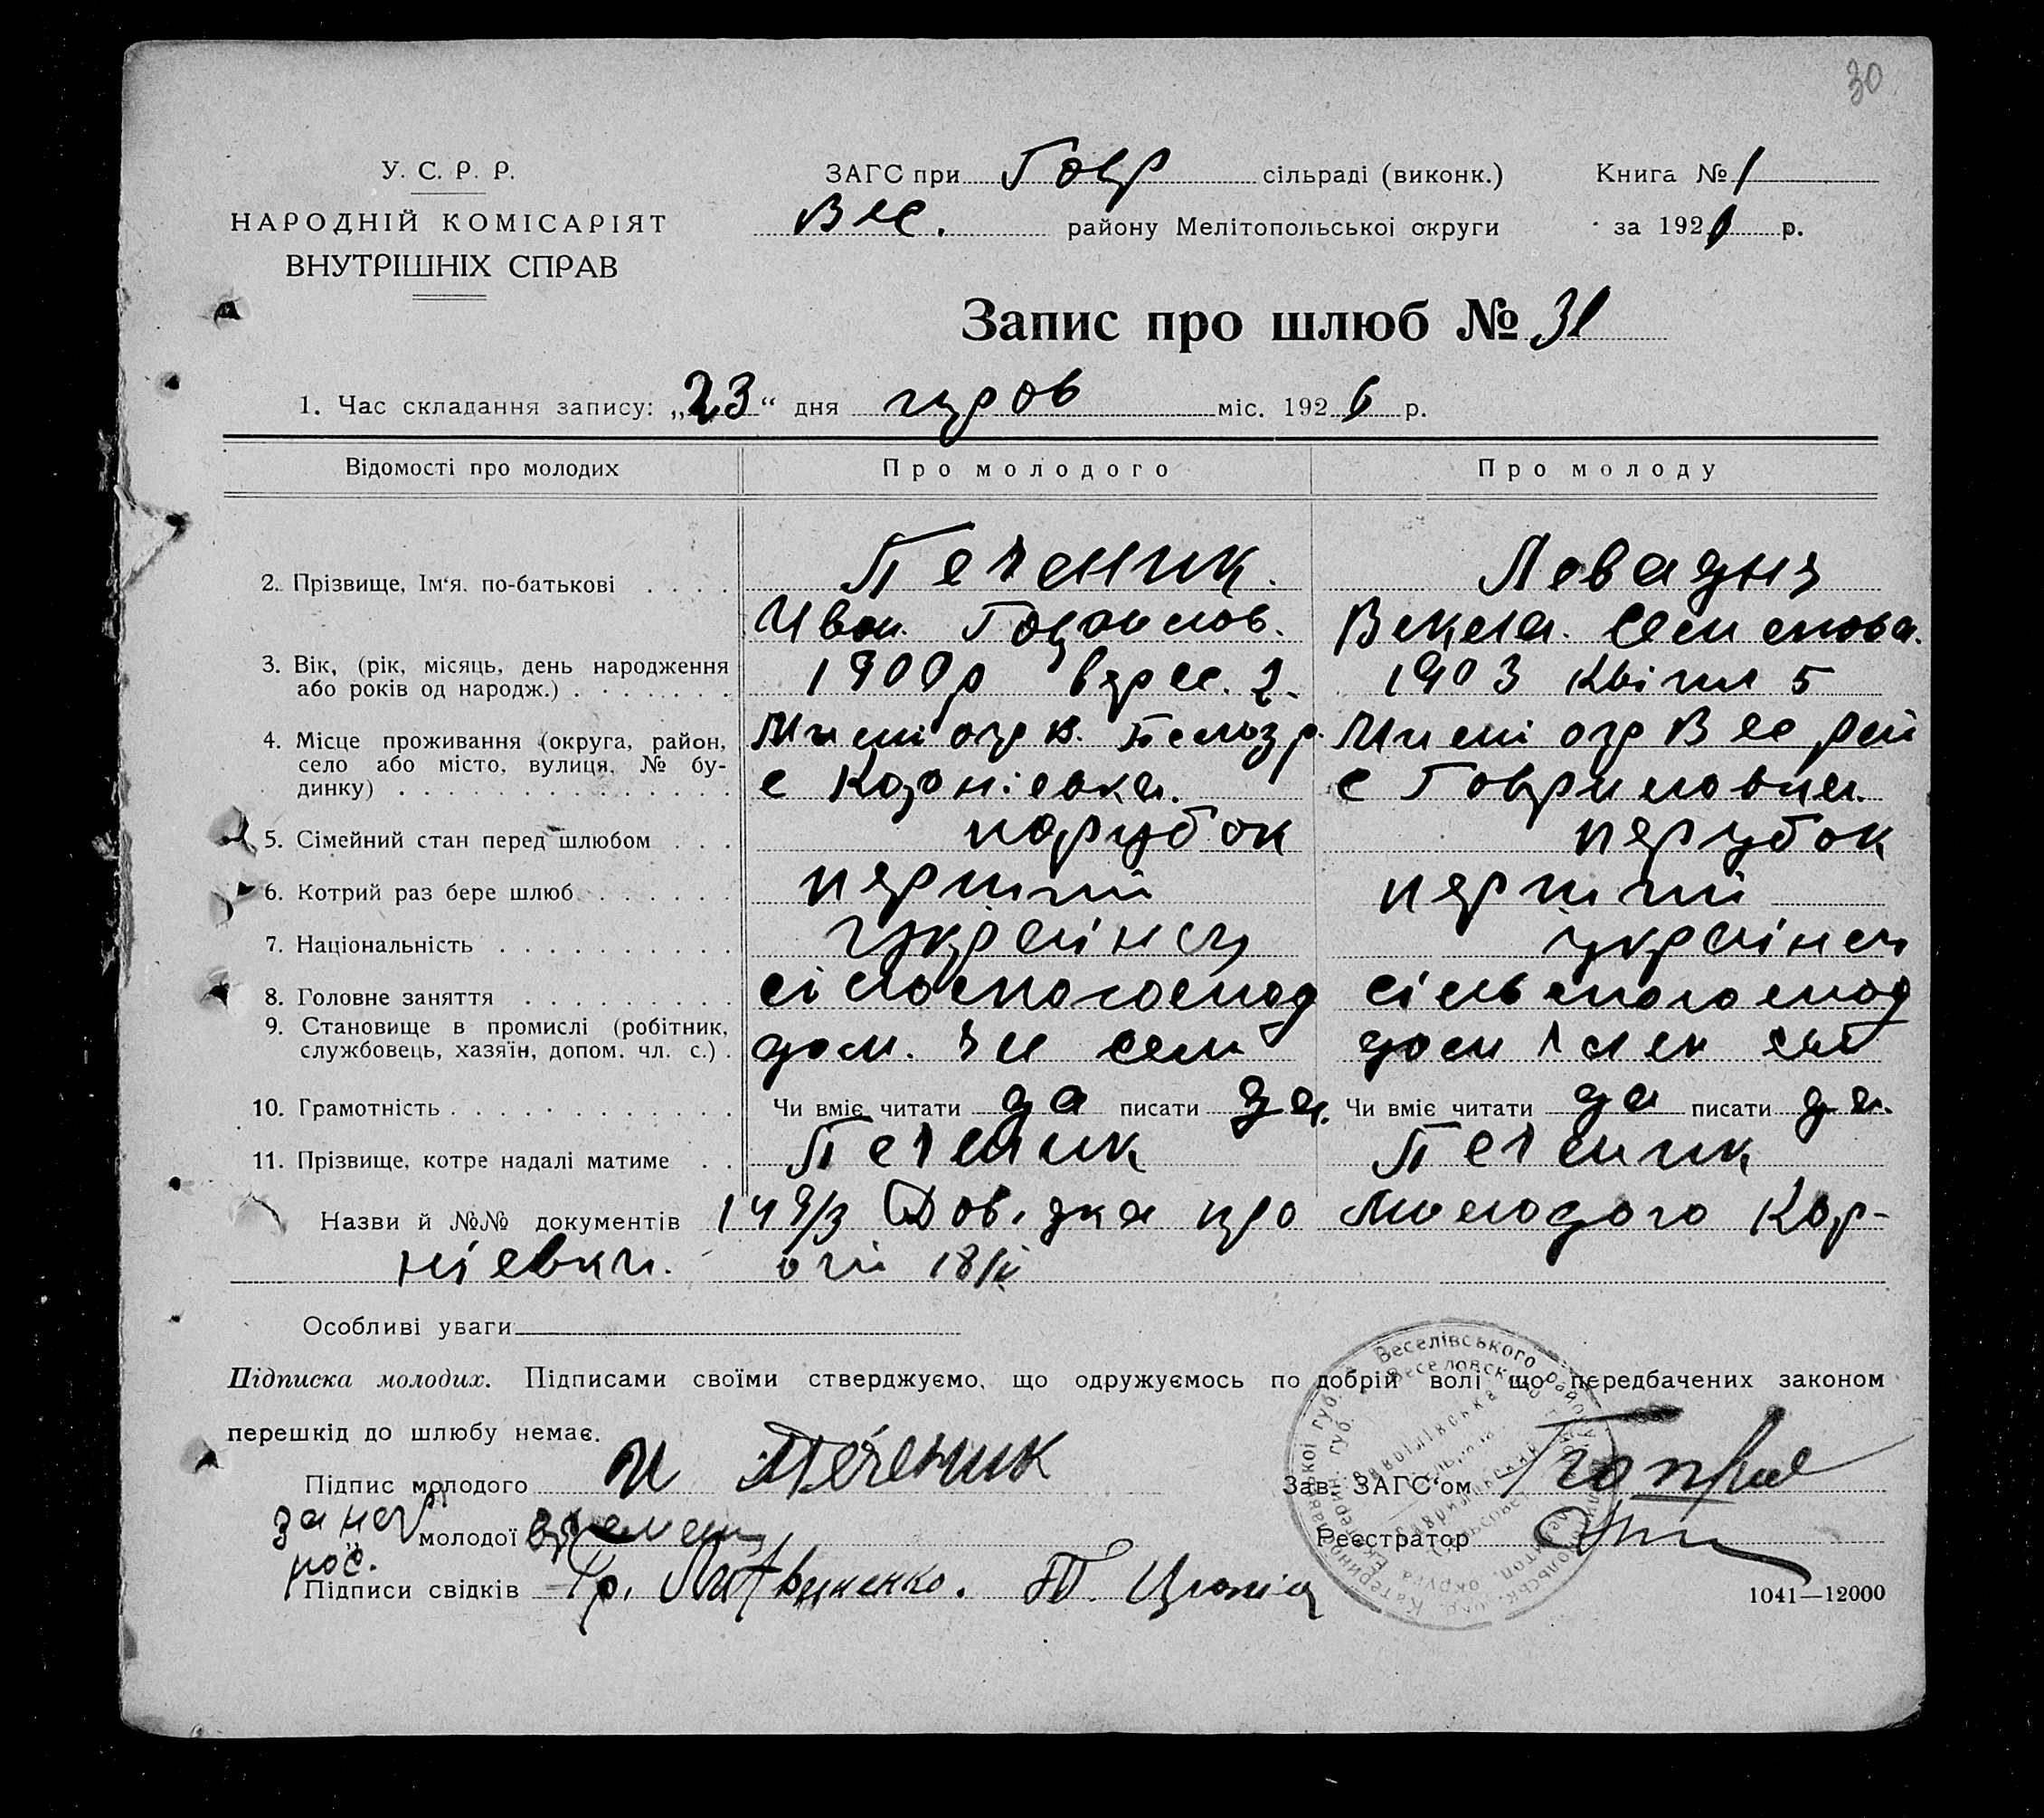 30
У. С. Р. Р.
НАРОДНІЙ КОМІСАРІЯТ
ВНУТРІШНІХ СПРАВ
ЗАГС при Говр сільраді (виконк.)
Вес. району Мелітопольської округи
Книга № 1
за 1926 р.
Запис про шлюб № 31
1. Час складання запису: „23“ дня міс. 1926 р.
Відомості про молодих
Про молодого
Про молоду
2. Прізвище, Ім'я, по-батькові . . . .
Печеник.
Иван.
Левадня
Векла. Семенова.
3. Вік, (рік, місяць, день народження
або років од народж.) . . . . . . .
1900р верес. 2.
1903 квітня 5
4. Місце проживання (округа, район,
село або місто, вулиця, № бу-
динку) . . . . . . . . . . . . . .
с Корніевка.
с Говриловка.
5. Сімейний стан перед шлюбом . . .
парубок
парубок
6. Котрий раз бере шлюб . . . . . .
перший
перший
7. Національність . . . . . . . . . .
українец
українец
8. Головне заняття . . . . . . . . .
9. Становище в промислі (робітник,
службовець, хазяїн, допом. чл. с.) .
дом. чл сем
дом член сем
10. Грамотність . . . . . . . . . . . .
Чи вміє читати да писати да.
Чи вміє читати да писати да.
11. Прізвище, котре надалі матиме . .
Печеник
Печеник
Назви й №№ документів 149/3 Довідка про молодого Кор-
ніевки. 18/IV
Особливі уваги
Підписка молодих. Підписами своїми стверджуємо, що одружуємось по добрій волі що передбачених законом
перешкід до шлюбу немає.
Підпис молодого И Печеник
Зав. ЗАГС'ом
за негр
„ молодої
Реєстратор
пос.
Підписи свідків Гр. Литвиненко.
1041—12000
Веселівського району